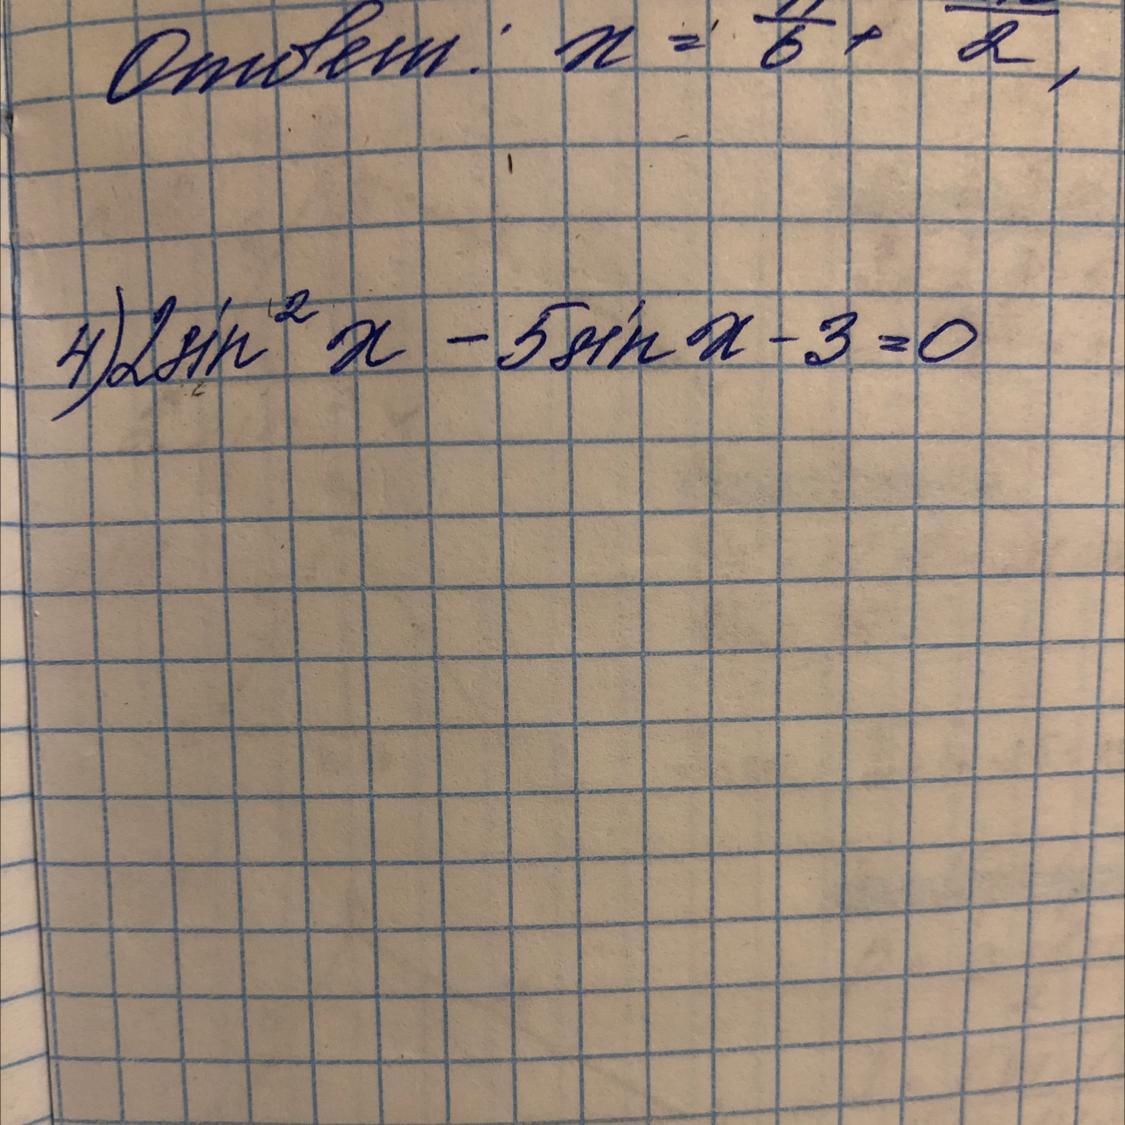 Ответ: x = π/6 +  /2,
4) 2sin² x - 5sin x - 3 = 0